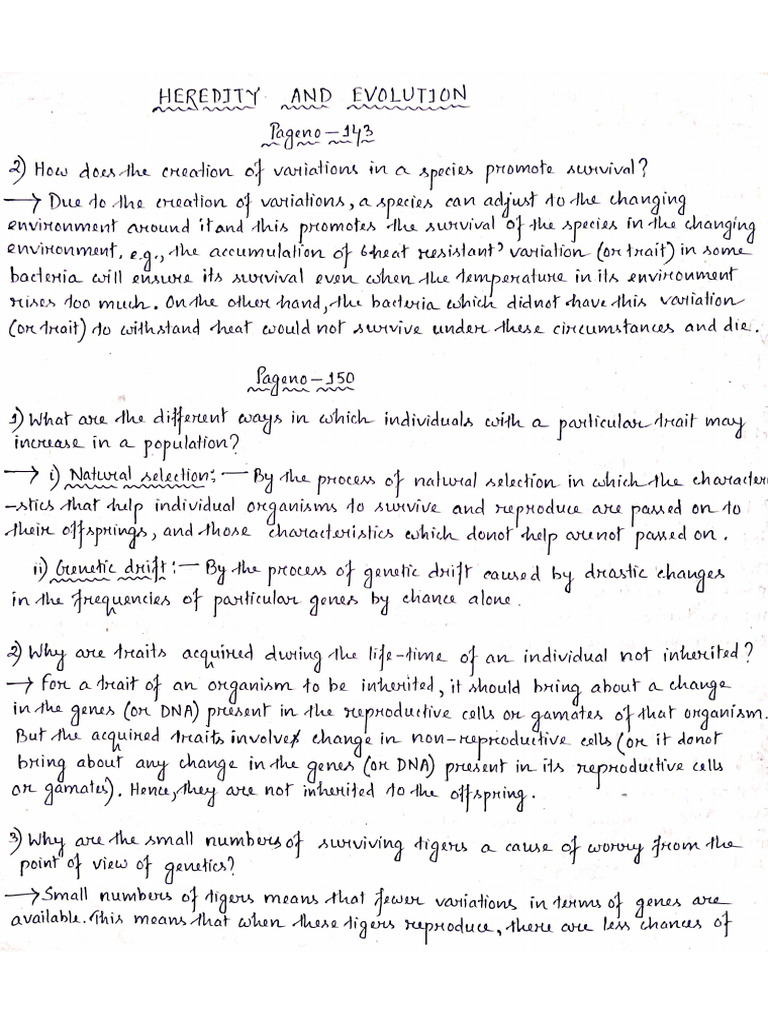 HEREDITY AND EVOLUTION
Pageno-143
2) How does the creation of variations in a species promote survival?
→ Due to the creation of variations, a species can adjust to the changing
environment around it and this promotes the survival of the species in the changing
environment. e.g., the accumulation of 'heat resistant' variation (or trait) in some
bacteria will ensure its survival even when the temperature in its environment
rises too much. On the other hand, the bacteria which didnot have this variation
(or trait) to withstand heat would not survive under these circumstances and die.
Pageno-150
1) What are the different ways in which individuals with a particular trait may
increase in a population?
→ i) Natural selection:- By the process of natural selection in which the character
-stics that help individual organisms to survive and reproduce are passed on to
their offsprings, and those characteristics which donot help are not passed on.
ii) Genetic drift:- By the process of genetic drift caused by drastic changes
in the frequencies of particular genes by chance alone.
2) Why are traits acquired during the life-time of an individual not inherited?
→ For a trait of an organism to be inherited, it should bring about a change
in the genes (or DNA) present in the reproductive cells or gamates of that organism.
But the acquired traits involve change in non-reproductive cells (or it donot
bring about any change in the genes (or DNA) present in its reproductive cells
or gamates). Hence, they are not inherited to the offspring.
3) Why are the small numbers of surviving tigers a cause of worry from the
point of view of genetics?
→ Small numbers of tigers means that fewer variations in terms of genes are
available. This means that when these tigers reproduce, there are less chances of